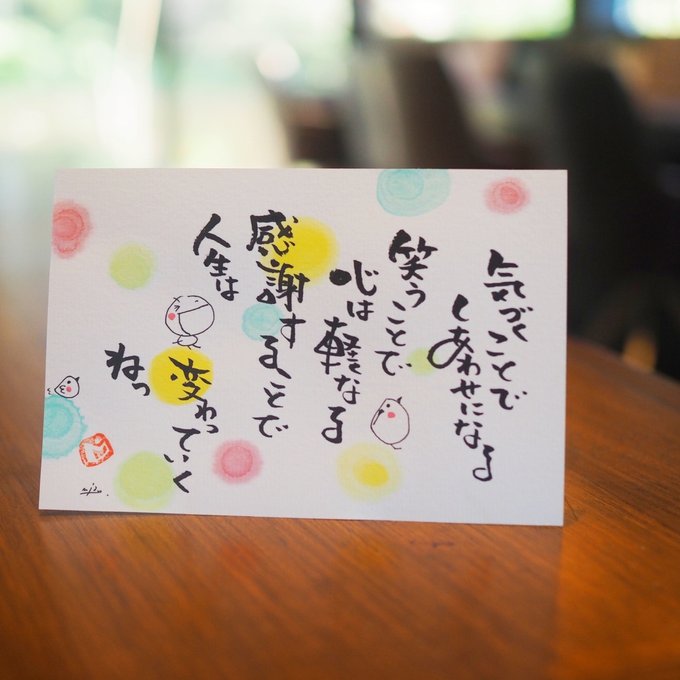 気づくことで
しあわせになる
笑うことで
心は軽くなる
感謝することで
人生は
変わっていく
ねっ